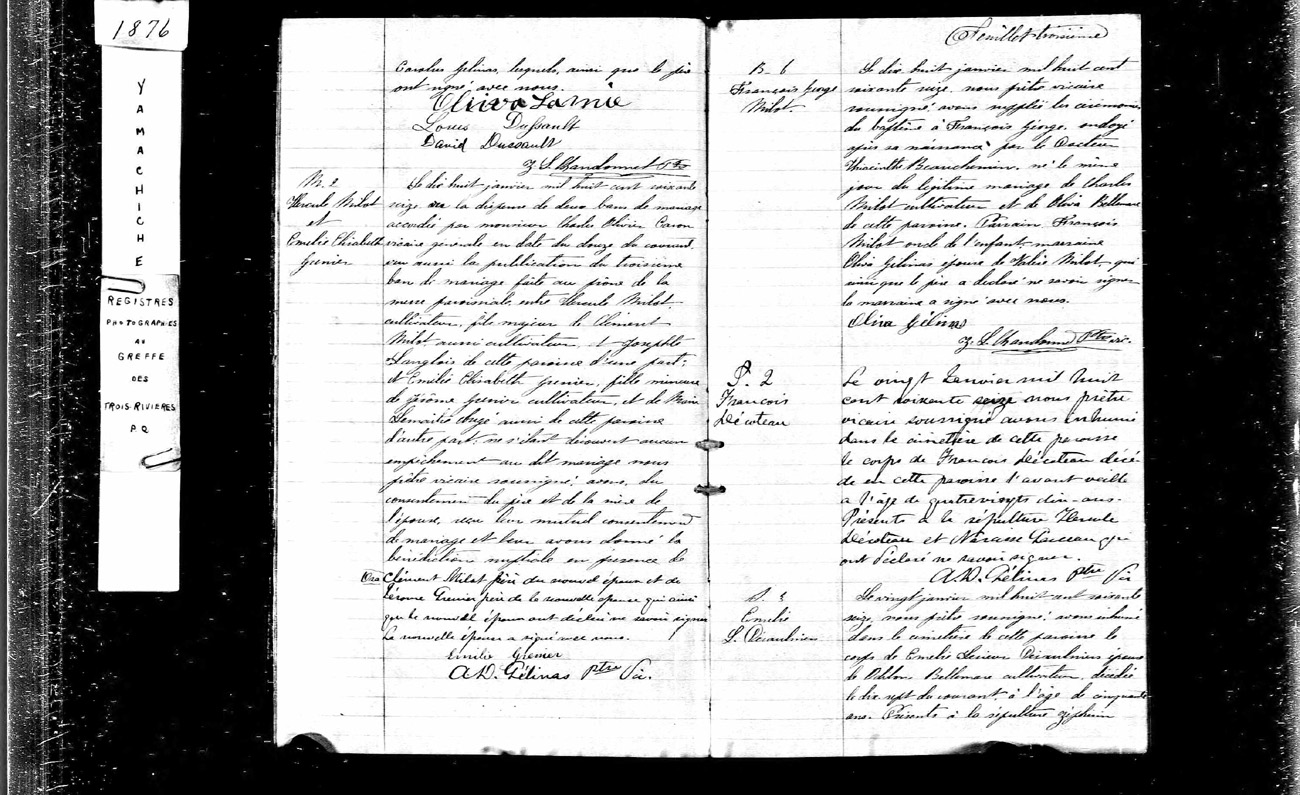 1876
YAMACHICHE
REGISTRES
PHOTOGRAPHIES
AU
GREFFE
DES
TROIS-RIVIERES
P.Q
Carolus Gelinas, lesquels, ainsi que le père
ont signé avec nous.
Louis Dussault
David Dussault
M. 2
Hercule Milot
et
Emelie Elisabeth
Grenier
Le dix huit janvier mil huit cent soixante
seize vu la dispense de deux bans de mariage
accordée par monsieur Charles Olivier Caron
vicaire générale en date du douze du courant
vu aussi la publication du troisième
ban de mariage faite au prone de la
messe paroissiale, entre Hercule Milot
cultivateur, fils majeur de Clément
Milot aussi cultivateur, & Josephte
Langlois de cette paroisse d'une part;
et Emélie Elisabeth Grenier, fille mineure
de Jérôme Grenier cultivateur, et de Marie
aussi de cette paroisse
d'autre part; ne s'étant découvert aucun
empêchement au dit mariage nous
prêtre vicaire soussigné, avons, du
consentement du père et de la mère de
l'épouse, reçu leur mutuel consentement
de mariage et leur avons donné la
bénédiction nuptiale en presence de
Clément Milot père du nouvel époux et de
Jérome Grenier père de la nouvelle épouse qui ainsi
que le nouvel époux ont déclaré ne savoir signer
la nouvelle épouse a signé avec nous.
Emilie Grenier
A.D. Gélinas Ptre Vic.
Feuillet troisième
B. 6
François George
Milot.
Le dix huit janvier mil huit cent
soixante seize, nous prêtre vicaire
soussigné avons suppléé les cérémonies
du baptême à François George, ondoyé
après sa naissance par le Docteur
Hyacinthe Beauchemin, né le même
jour du légitime mariage de Charles
Milot cultivateur et de Olivie Bellemare
de cette paroisse. Parrain François
Milot oncle de l'enfant, marraine
Olive Gélinas épouse de Milot, qui
ainsi que le père a déclaré ne savoir signer
la marraine a signé avec nous.
Oliva Gélinas
S. 2
Francois
Décoteau
Le vingt Janvier mil huit
cent soixante seize nous prêtre
vicaire soussigné avons inhumé
dans le cimetière de cette paroisse
le corps de Francois Décoteau décé-
dé en cette paroisse l'avant veille
a l'âge de quatrevingts dix-ans.
Présents a la sépulture Hercule
Décoteau et Narcisse qui
ont déclaré ne savoir signer.
A.D. Gélinas Ptre Vic
S. 3
Emelie
L. Désaulniers
Le vingt janvier mil huit cent soixante
seize, nous prêtre soussigné, avons inhumé
dans le cimetière de cette paroisse le
corps de Emelie Lesieur Désaulniers épouse
de Odilon Bellemare cultivateur, décédée
le dix sept du courant, à l'âge de cinquante
ans. Présents à la sépulture Zéphirin